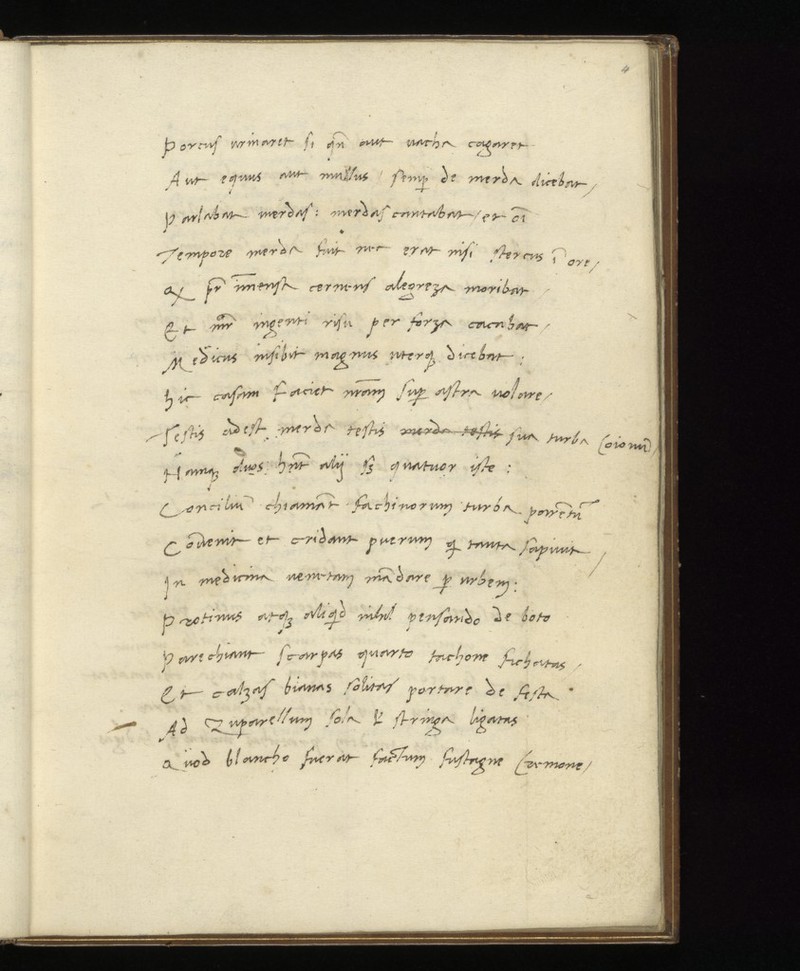 4
Porcus urinaret si qñ aut uacha cagaret
Aut equus aut mullus / semp̄ de merda dicebat /
Parlabat merdas: merdas cantabat / et oī
Tempore merda fuit nec erat nisi stercus ī ore /
Qx pr̄ īmensa cernens alegreza moribat /
Et mr̄ ingenti risu per forza cacabat /
Medicus insibit magnus uterqꝫ dicebat :
hic casam faciet nr̄am sup̄ astra uolare /
Testis adest merda testis merda testis sua turba (oionū) /
Namqꝫ duos hn̄t alij sꝫ quatuor iste :
Conciliū chiamāt fachinorum turba parētū
Cōuenit et cridant puerum qi tanta sapiuit /
In medicina uenetam mādare p̄ urbem :
Protinus atqꝫ aliqid nihil pensando de boto
Parechiant scarpas quarto tachone fichatas /
Et calzas bianas solitas portare de festa
Ad Zuparellum sola & stringa ligatas
Quod blancho fuerat factum fustagne (remone /